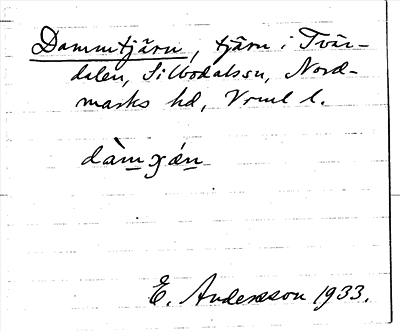 Dammtjärn, tjärn i Tvär-
dalen, Silbodals sn, Nord-
marks hd, Vrml l.
dàm̲ɣǽn̲
E. Andersson 1933.